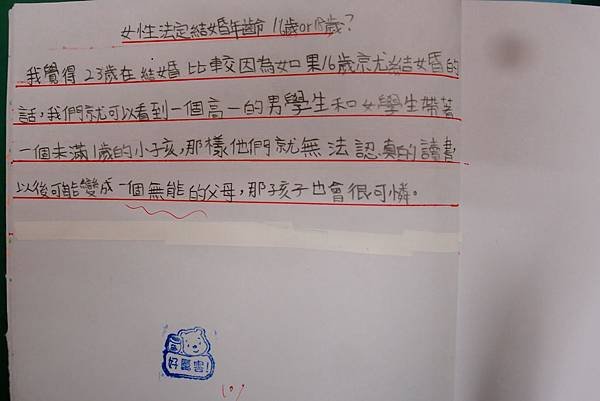 女性法定結婚年齡 16歲or18歲?
我覺得23歲在結婚比較因為如果16歲就結婚的
話,我們就可以看到一個高一的男學生和女學生帶著
一個未滿1歲的小孩,那樣他們就無法認真的讀書
以後可能變成一個無能的父母,那孩子也會很可憐。
好厲害!